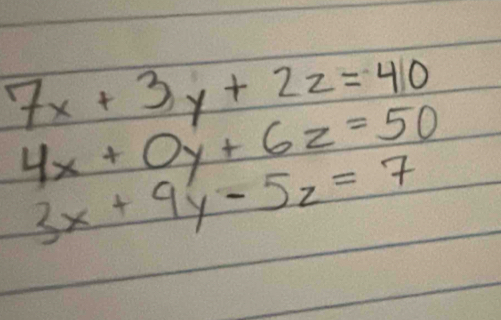 7x + 3y + 2z = 40
4x + 0y + 6z = 50
3x + 9y - 5z = 7